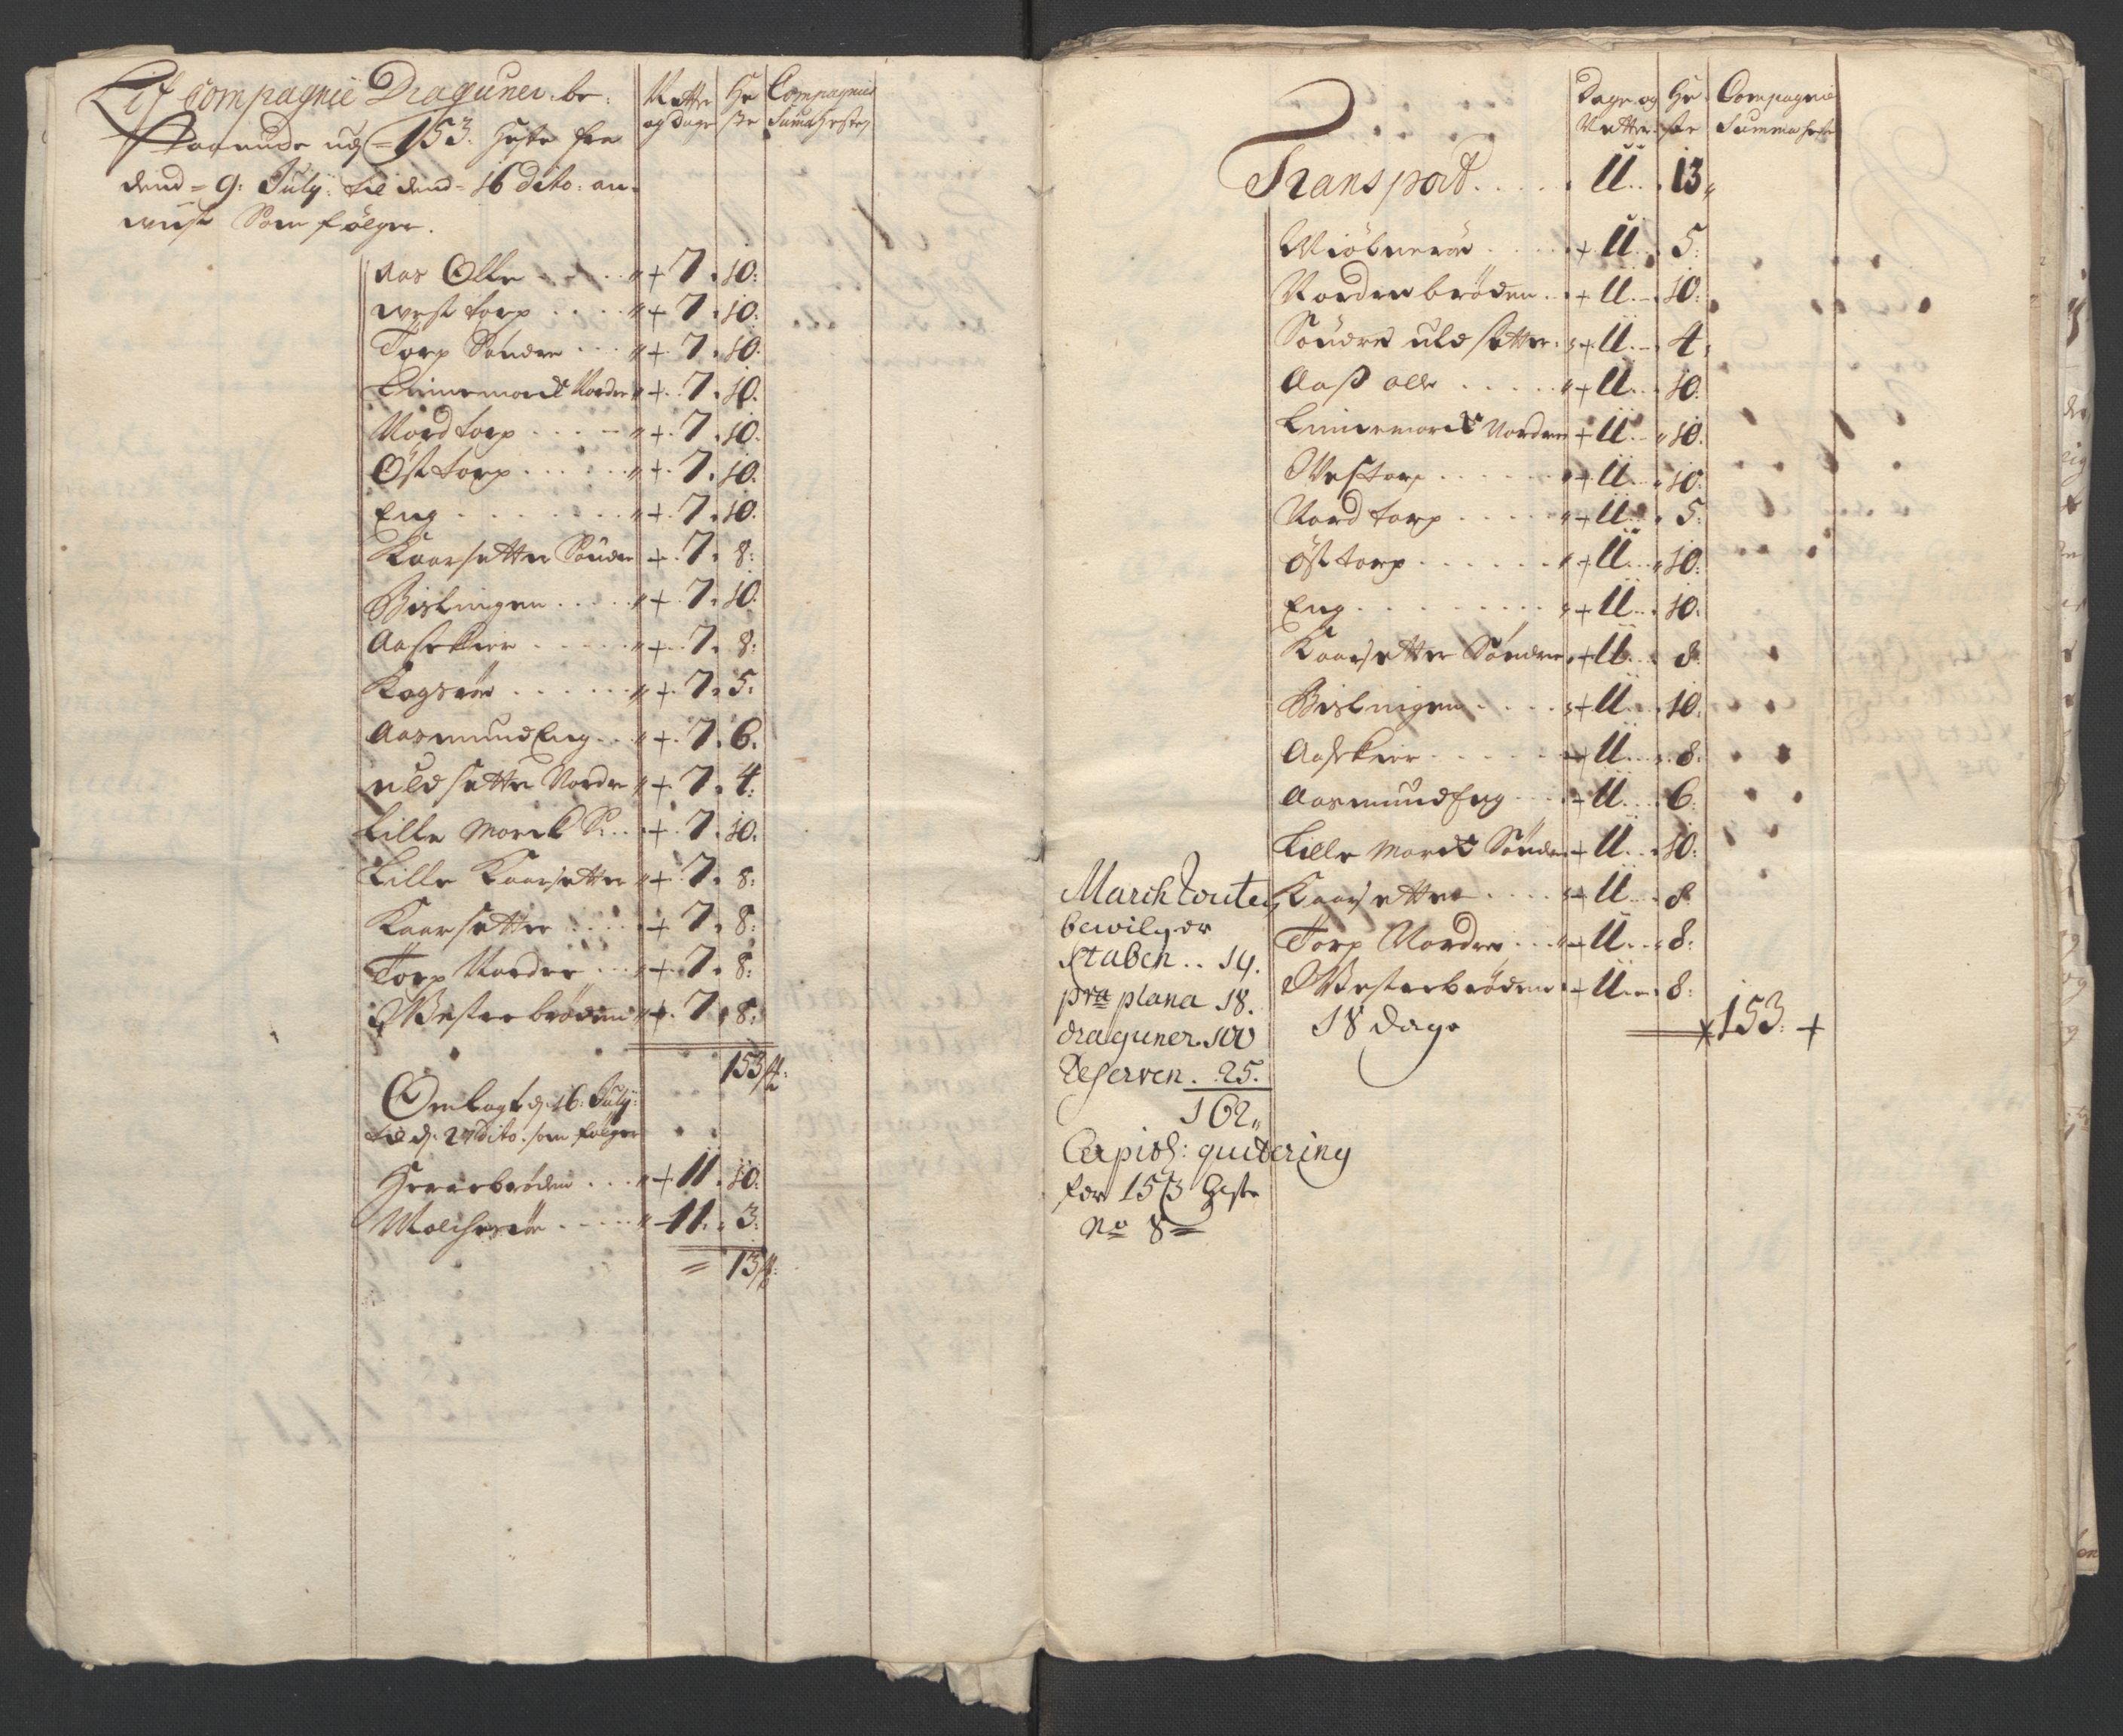 Lif Compagnie Draguner be-
staaende udj = 153. Heste fra
dend = 9: July: til dend = 16 dito: an-
wist Som følger.
Netter og dage | He ste | Compagniets Suma Hester
Aas Olle . . . . " + 7 . 10:
west torp . . . . " + 7 . 10:
Torp Søndre . . . " + 7 . 10:
Linnemorck Nordre " + 7 . 10.
Nord torp . . . . " + 7 . 10.
Øst torp . . . . . " + 7 . 10.
Eng . . . . . . . " + 7 . 10.
Kaarsetter Søndre + 7 . 8:
Bislingen . . . . . " + 7 . 10.
Aaserkier . . . . . " + 7 . 8:
Kogsrød . . . . . . " + 7 . 5:
Aasmund Eng . . . " + 7 . 6.
uldsetter Nordre " + 7 . 4:
Lille Morck S: . . + 7 . 10:
Lille Kaarsetter " + 7 . 8:
Kaarsetter . . . . + 7 . 8:
Torp Nordre . . . " + 7 . 8:
Westerbrøden " + 7 . 8:
153
Omlagt d. 16. July:
til d. 27 dito. som følger
Herrebrøden . . . " + 11 . 10.
. . . . " - 11 . 3:
= 13
Dage og Netter | He ste | Compagnie Summa Heste
Transport . . . . . 11 . . 13 "
Miølnerød . . . . . + 11 . . 5:
Nordre brøden . . + 11 . . 10:
Søndre uldsetter . + 11 . . 4:
Aass olle . . . . . " + 11 . . 10.
Linnemorck Nordre + 11 . " 10.
Westorp . . . . . . + 11 . " 10:
Nord torp . . . . . " + 11 . . 5:
Øst torp . . . . . . " + 11 . . " 10:
Eng . . . . . . . . " + 11 . . 10:
Kaarsetter Søndre + 11 . . 8
Bislingen . . . . + 11 . . . 10:
Aaserkier . . . . . + 11 . . . 8:
Aasmund Eng . . . + 11 . . . 6:
Lille Morck Søndre + 11 . . . 10:
Kaarsetter . . . . + 11 . . 8
Torp Nordre . . . " + 11 . . " 8:
Westerbrøden + 11 . . 8:
18 dage 153: +
March Routen
bewilger
Staben . . 19.
pra plana 18.
draguner 100
Reserven . . 25.
162 "
Copish: quitering
for 153 Heste
No 8 =